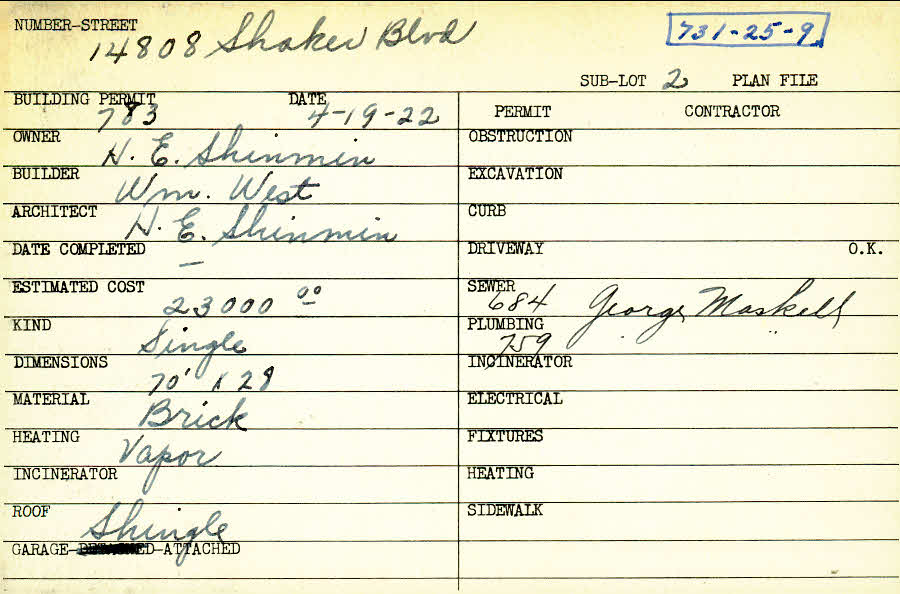 NUMBER-STREET
14808 Shaker Blvd
731-25-9
SUB-LOT 2 PLAN FILE
BUILDING PERMIT DATE
783 4-19-22
PERMIT CONTRACTOR
OWNER H. E. Shinmin
OBSTRUCTION
BUILDER Wm. West
EXCAVATION
ARCHITECT H. E. Shinmin
CURB
DATE COMPLETED —
DRIVEWAY O.K.
ESTIMATED COST 23000 00
SEWER 684 George Maskell
KIND Single
PLUMBING 759 "
DIMENSIONS 70' x 28
INCINERATOR
MATERIAL Brick
ELECTRICAL
HEATING Vapor
FIXTURES
INCINERATOR
HEATING
ROOF Shingle
SIDEWALK
GARAGE-DETACHED-ATTACHED